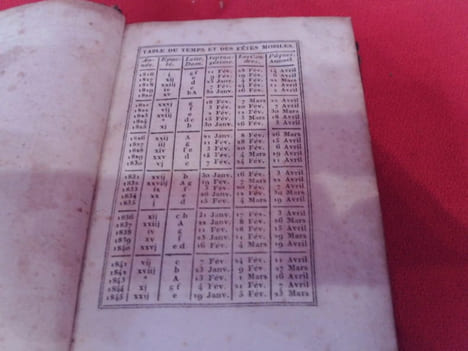 TABLE DU TEMPS ET DES FÊTES MOBILES.
Année. Épacte. Lettr. Dom. Septuagésime. Les Cendres. Pâques Annuel.
1816 j g f 11 Fév. 28 Fév. 14 Avril
1817 Fév. Fév. 6 Avril
1818 xxiij d Janv. Fév. 22 Mars
1819 iv c 7 Fév. 24 Fév. 11 Avril
1820 xv b A 30 Janv. 16 Fév. 2 Avril
1821 xxvj g 18 Fév. 7 Mars 22 Avril
1822 vij f 3 Fév. Fév. 7 Avril
1823 e Fév. 30 Mars
1824 * d c Fév. 3 Mars 18 Avril
1825 xj b 30 Janv. 16 Fév. 3 Avril
1826 xxij A 22 Janv. 8 Fév. 26 Mars
1827 iij g 11 Fév. 28 Fév. 15 Avril
1828 xiv f e 3 Fév. Fév. 6 Avril
1829 xxv d 15 Fév. 4 Mars 19 Avril
1830 vj c 7 Fév. 24 Fév. 11 Avril
1831 xvij b 30 Janv. 16 Fév. 3 Avril
1832 xxviij A g 19 Fév. 7 Mars 22 Avril
1833 ix f 3 Fév. Fév. 7 Avril
1834 xx e 26 Janv. Fév. 30 Mars
1835 j d 15 Fév. 4 Mars 19 Avril
1836 xij c b 31 Janv. 17 Fév. 3 Avril
1837 xxiij A 22 Janv. 8 Fév. 26 Mars
1838 iv g 11 Fév. 28 Fév. 15 Avril
1839 xv f Janv. Fév. 31 Mars
1840 xxvj e d 16 Fév. 4 Mars 19 Avril
1841 vij c 7 Fév. 24 Fév. 11 Avril
1842 xviij b 23 Janv. 9 Fév. 27 Mars
1843 * A Fév. Mars 16 Avril
1844 xj g f 4 Fév. 21 Fév. 7 Avril
1845 xxij e 19 Janv. 5 Fév. 23 Mars